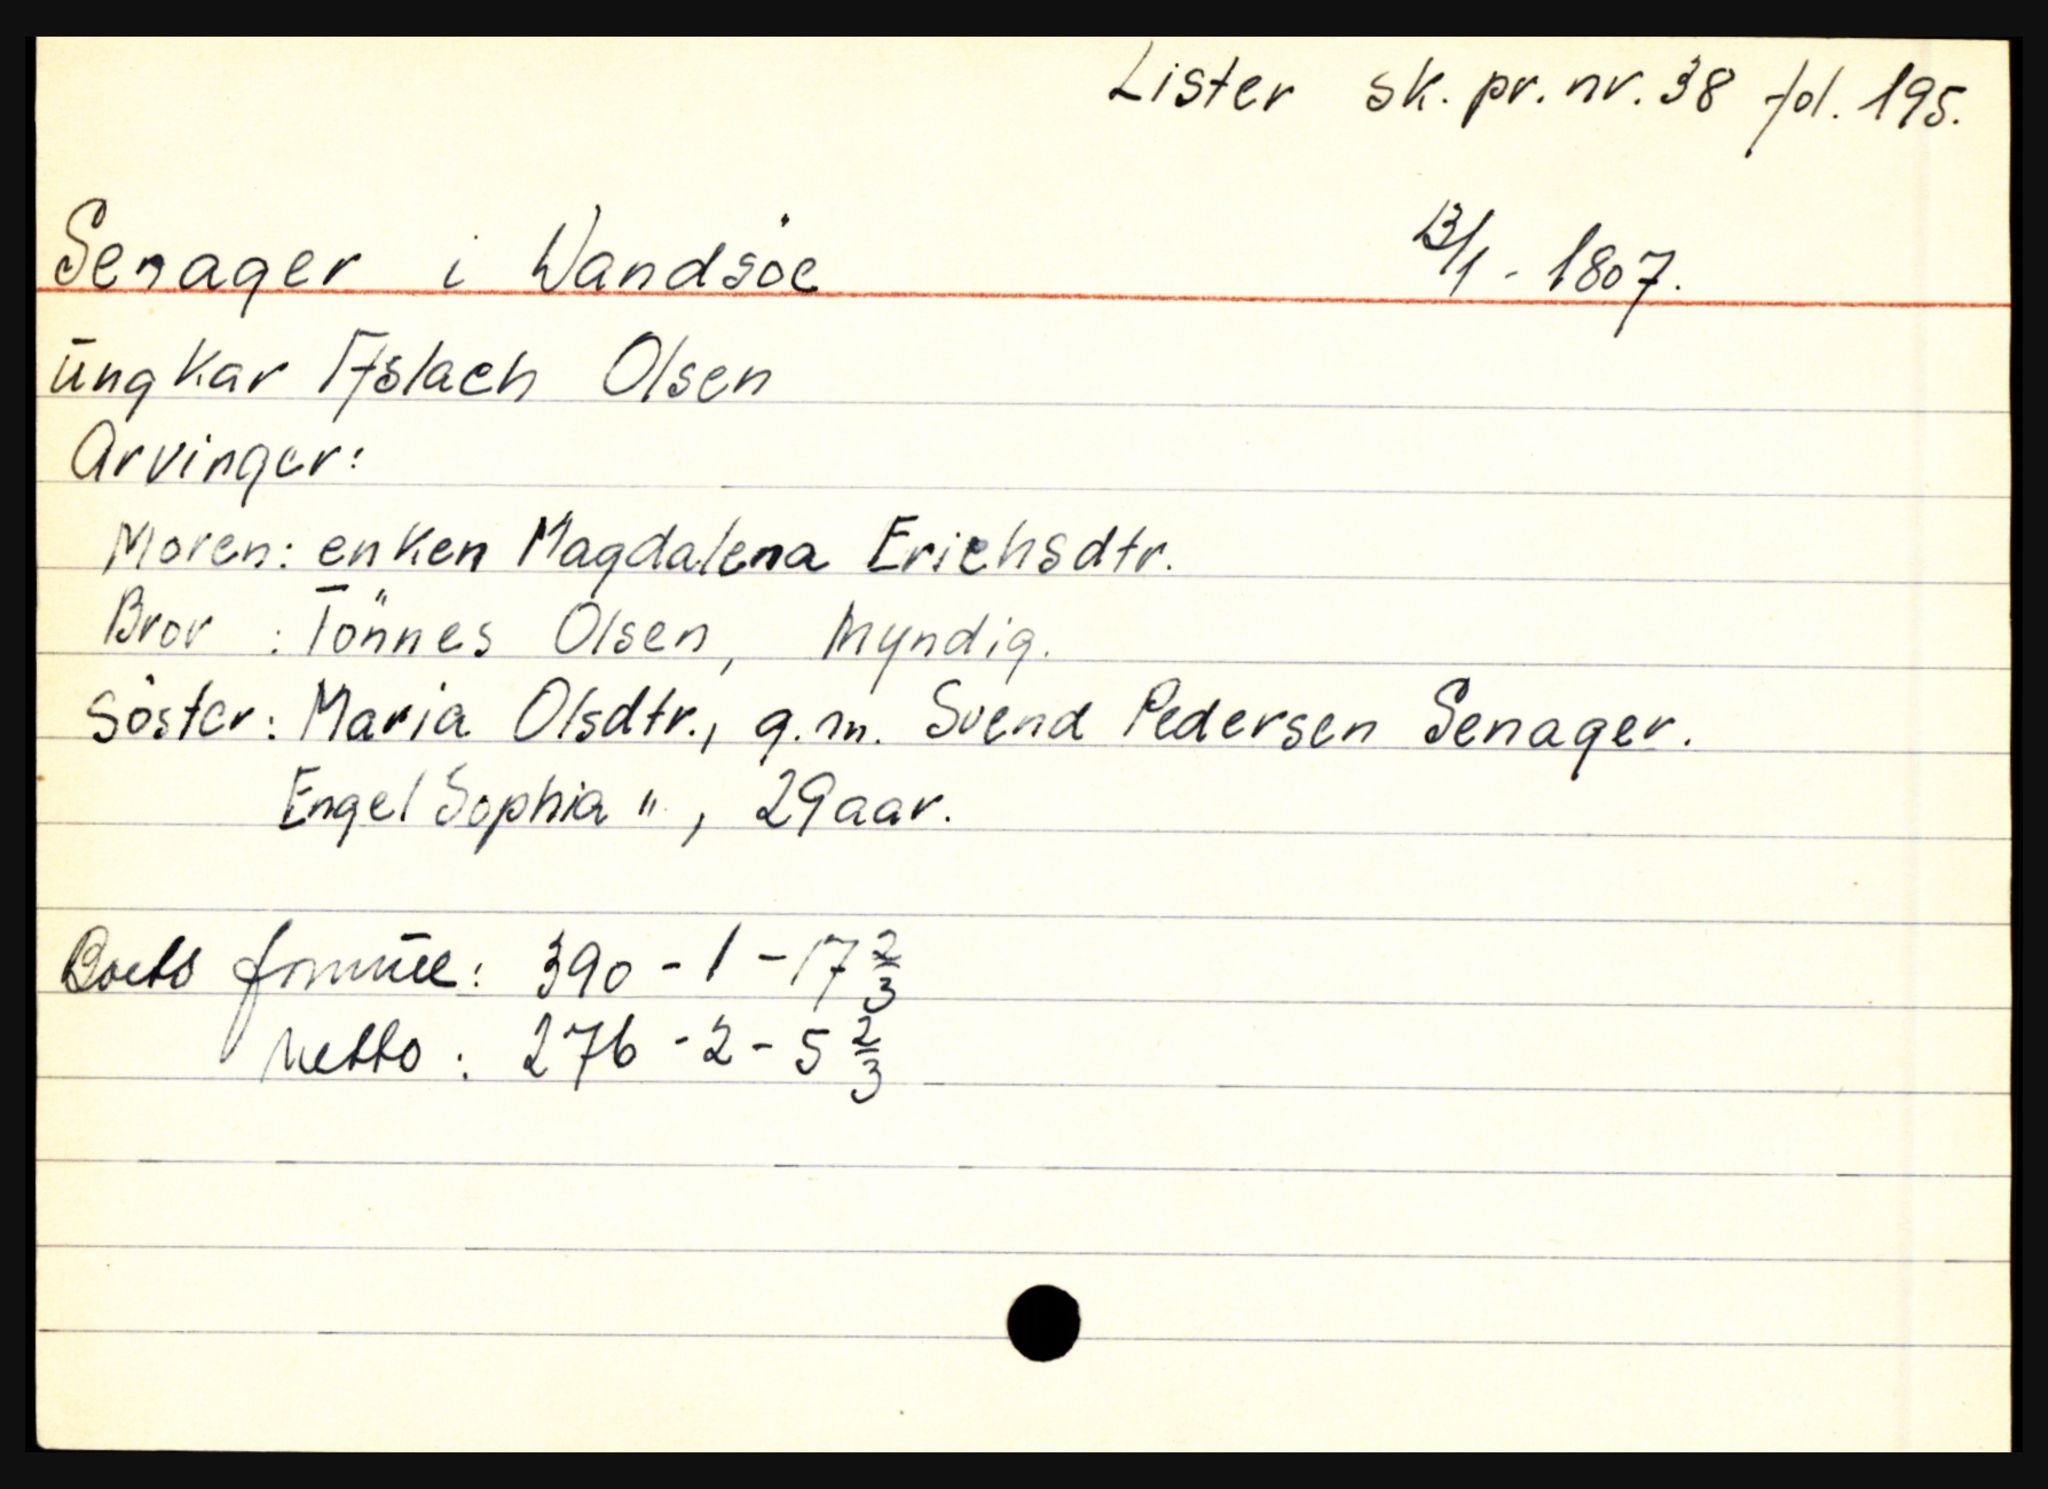 Lister sk. pr. nr. 38 fol. 195.
Senager i Wandsöe 13/1 - 1807.
ungkar Aslach Olsen
Arvinger:
Moren: enken Magdalena Erichsdtr.
Bror : Tönnes Olsen, Myndig.
Söster: Maria Olsdtr., g.m. Svend Pedersen Senager.
Engel Sophia ", 29 aar.
Boets formue: 390 - 1 - 17 2/3
Netto : 276 - 2 - 5 2/3